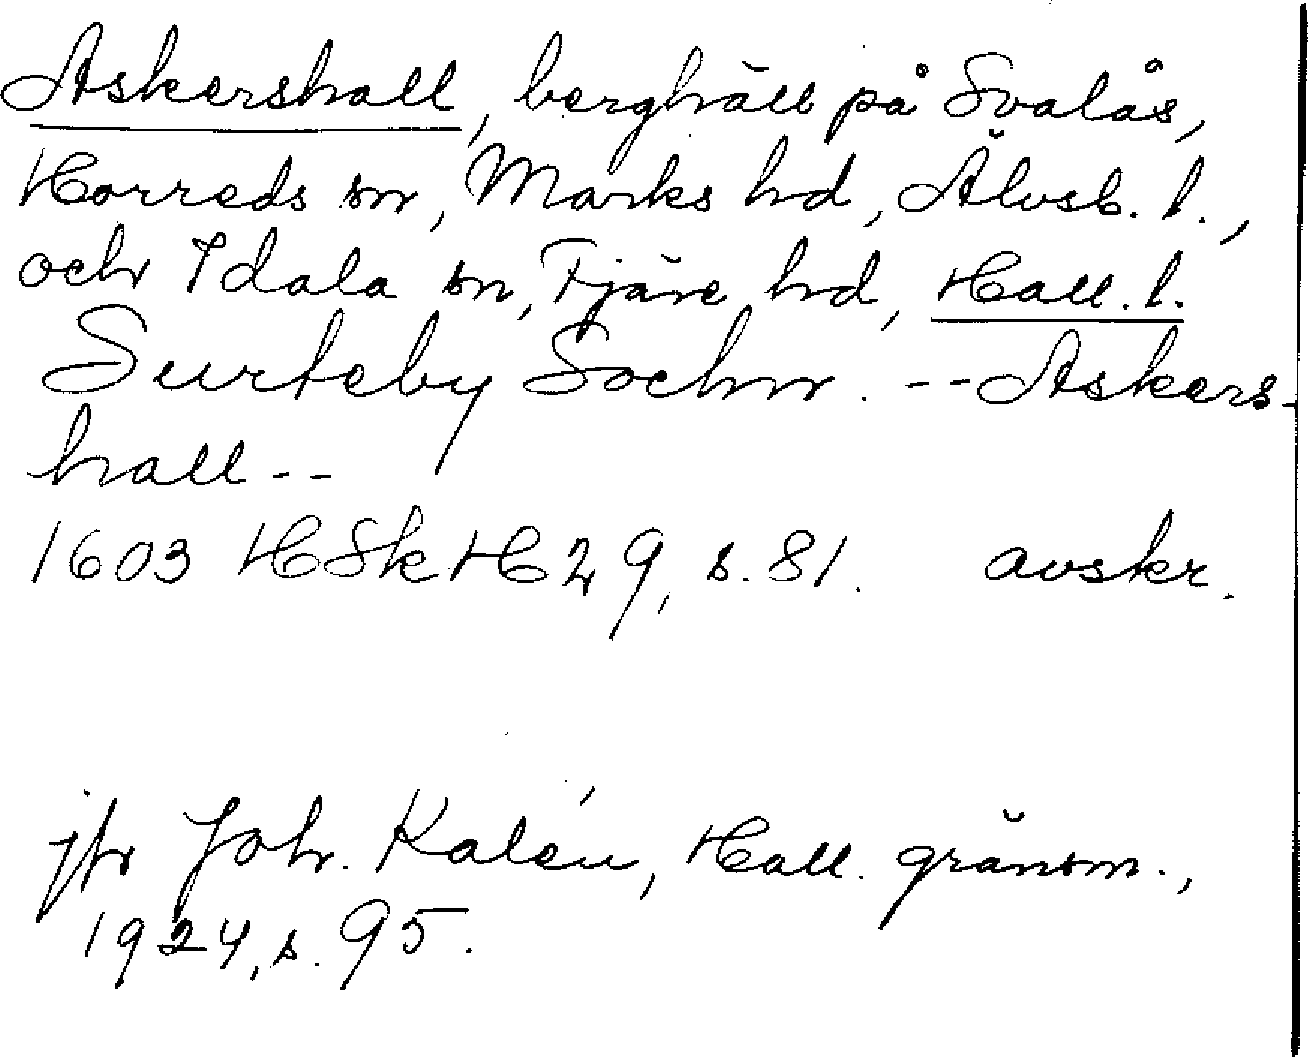 Askershall, berghäll på Svalås,
Horreds sn, Marks hd, Älvsb. l.,
och Idala sn, Fjäre hd, Hall. l.
Surteby Sochn. -- Askers-
hall --
1603 HSkH 29, s. 81. avskr.
jfr Joh. Kalén, Hall. gränsm.,
1924, s. 95.